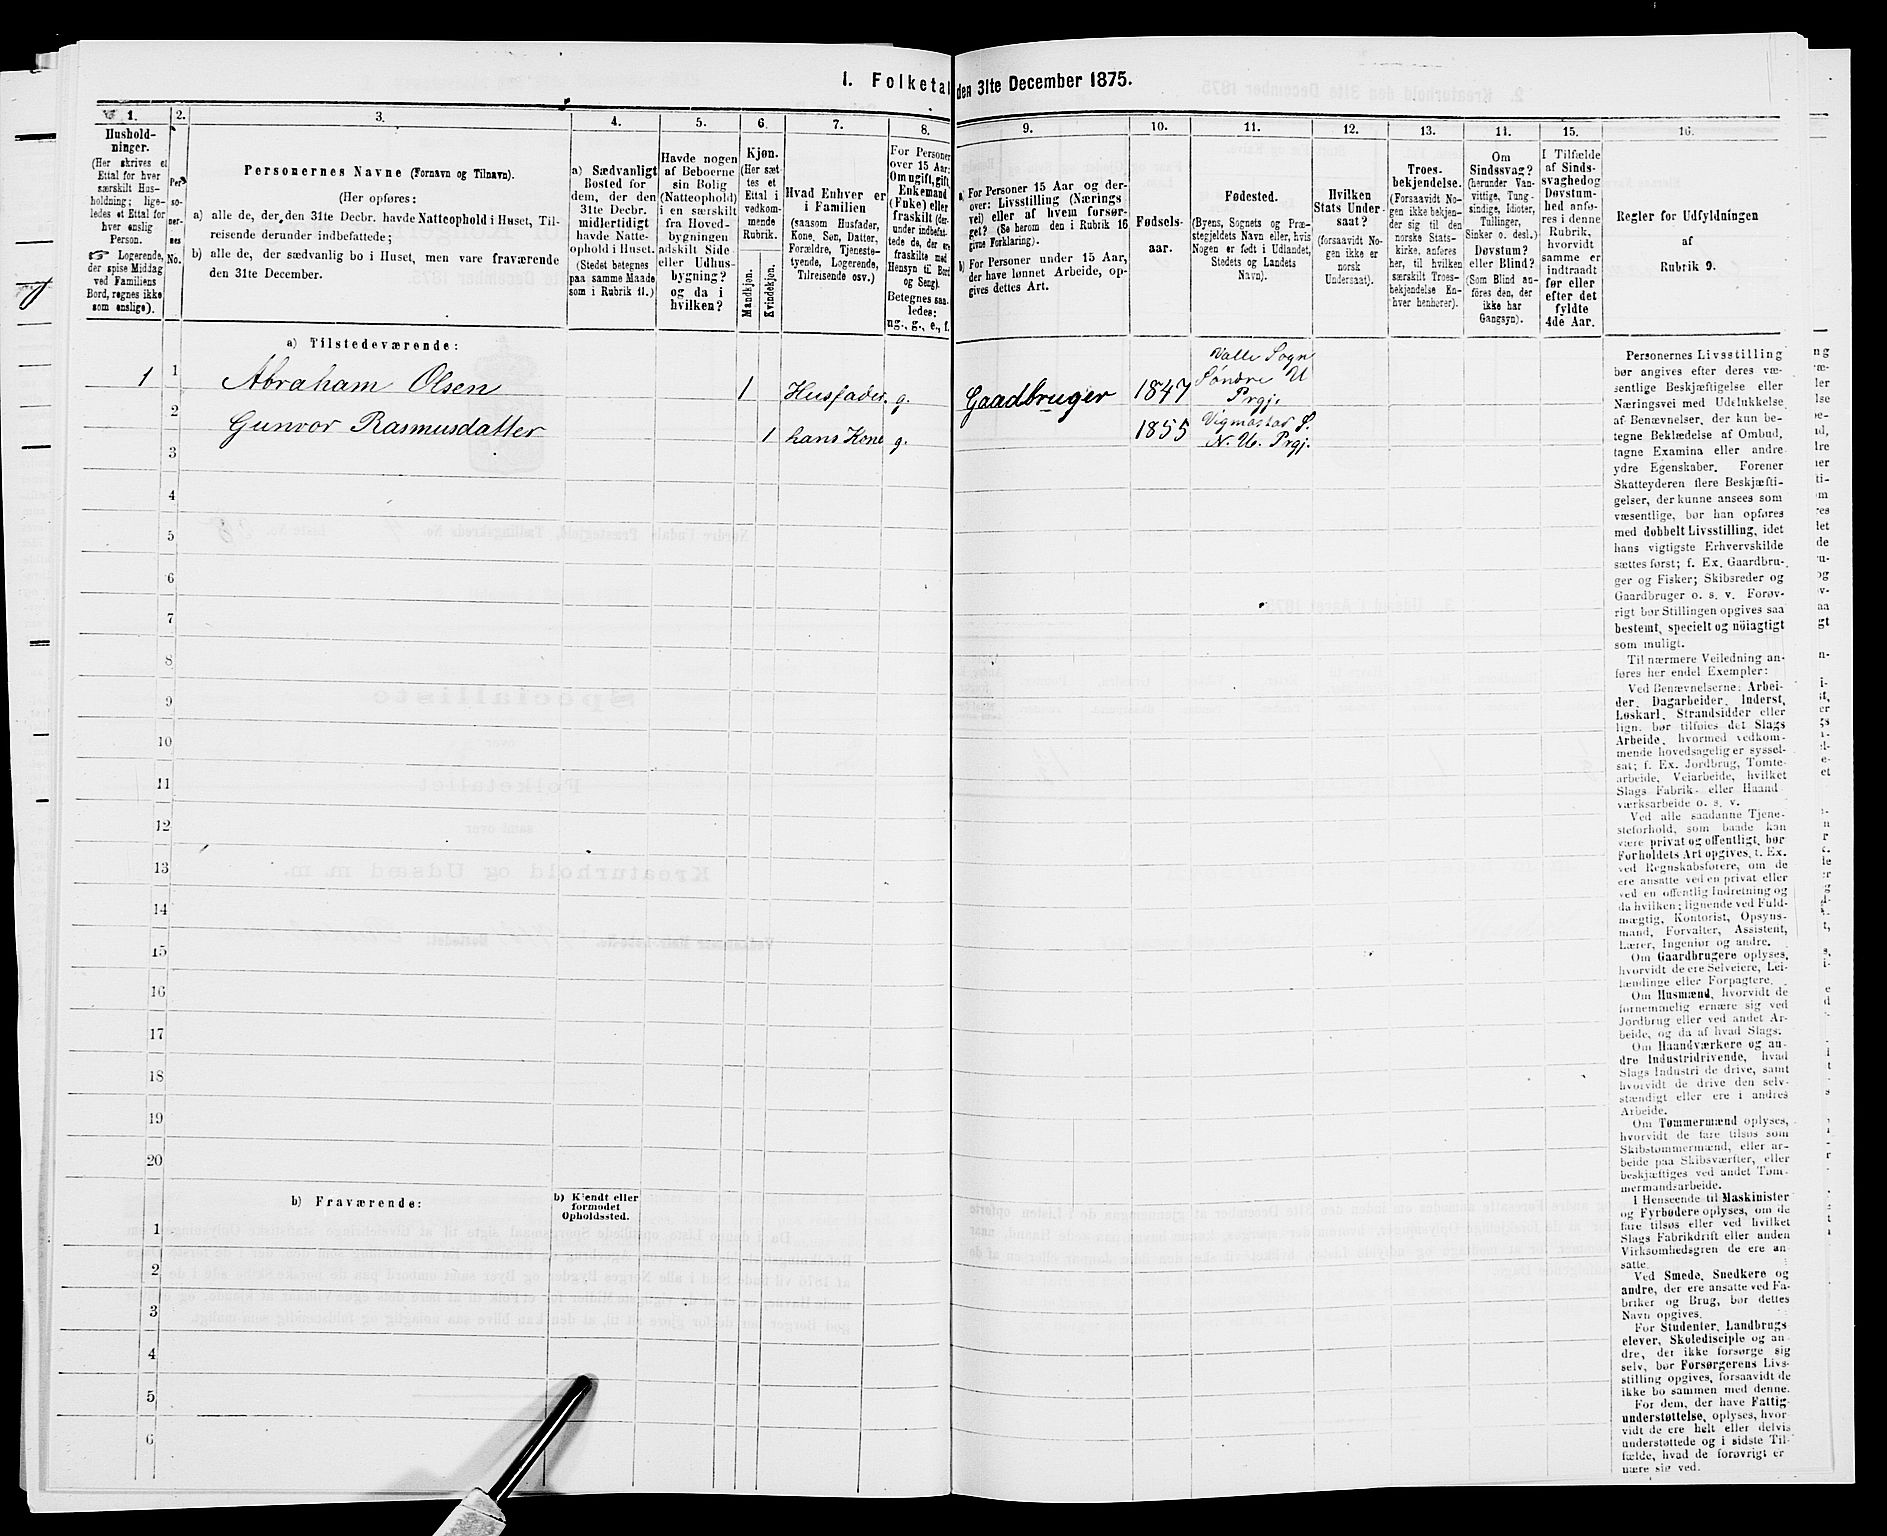 1. Folketal den 31te December 1875.
1. 2. 3. 4. 5. 6. 7. 8. 9. 10. 11. 12. 13. 14. 15. 16.
Hushold-
ninger.
(Her skrives et
Ettal for hver
særskilt Hus-
holdning; lige-
ledes et Ettal for
hver enslig
Person.
☞ Logerende,
der spise Middag
ved Familiens
Bord, regnes ikke
som enslige).
Per-
so-
ner-
nes
No.
Personernes Navne (Fornavn og Tilnavn).
(Her opføres:
a) alle de, der den 31te Decbr. havde Natteophold i Huset, Til-
reisende derunder indbefattede;
b) alle de, der sædvanlig bo i Huset, men vare fraværende
den 31te December.
a) Sædvanligt
Bosted for
dem, der den
31te Decbr.
midlertidigt
havde Natte-
ophold i Huset.
(Stedet betegnes
paa samme Maade
som i Rubrik 11.)
Havde nogen
af Beboerne
sin Bolig
(Natteophold)
i en særskilt
fra Hoved-
bygningen
adskilt Side
eller Udhus-
bygning?
og da i
hvilken?
Kjøn.
(Her sæt-
tes et
Ettal i
vedkom-
mende
Rubrik.
Mandkjøn.
Kvindekjøn.
Hvad Enhver er
i Familien
(saasom Husfader,
Kone, Søn, Datter,
Forældre, Tjeneste-
tyende, Logerende,
Tilreisende osv.)
For Personer
over 15 Aar:
Om ugift, gift,
Enkemand
(Enke) eller
fraskilt (der-
under indbefat-
tede de, der ere
fraskilte med
Hensyn til Bord
og Seng).
Betegnes saa-
ledes:
ug., g., e., f.
a) For Personer 15 Aar og der-
over: Livsstilling (Nærings
vei) eller af hvem forsør-
get? (Se herom den i Rubrik 16
givne Forklaring).
b) For Personer under 15 Aar,
der have lønnet Arbeide, op-
gives dettes Art.
Fødsels-
aar.
Fødested.
(Byens, Sognets og Præ-
stegjeldets Navn eller, hvis
Nogen er født i Udlandet,
Stedets og Landets
Navn).
Hvilken
Stats Under-
saat?
(forsaavidt No-
gen ikke er
norsk
Undersaat).
Troes-
bekjendelse.
(Forsaavidt No-
gen ikke bekjen-
der sig til den
norske Stats-
kirke, anføres
her, til hvilken
særskilt Troes-
bekjendelse En-
hver henhører).
Om
Sindssvag?
(herunder Van-
vittige, Tung-
sindige, Idioter,
Tullinger,
Sinker o. desl.)
Døvstum?
eller Blind?
(Som Blind an-
føres den, der
ikke har
Gangsyn).
I Tilfælde
af Sinds-
svaghed og
Døvstum-
hed anfø-
res i denne
Rubrik,
hvorvidt
samme er
indtraadt
før eller
efter det
fyldte
4de Aar.
Regler for Udfyldningen
af
Rubrik 9.
a) Tilstedeværende:
1 1 Abraham Olsen 1 Husfader. g. Gaadbruger 1847 Valle Sogn
Søndre U
Prgj.
2 Gunvor Rasmusdatter 1 hans Kone g. 1855 Vigmostad S.
N. U. Prgj.
3
4
5
6
7
8
9
10
11
12
13
14
15
16
17
18
19
20
b) Fraværende:
b) Kjendt eller
formodet
Opholdssted.
1
2
3
4
5
6
Personernes Livsstilling
bør angives efter deres væ-
sentlige Beskjæftigelse eller
Næringsvei med Udelukkelse
af Benævnelser, der kun be-
tegne Beklædelse af Ombud,
tagne Examina eller andre
ydre Egenskaber. Forener
Skatteyderen flere Beskjæfti-
gelser, der kunne ansees som
væsentlige, bør han opføres
med dobbelt Livsstilling, idet
hans vigtigste Erhvervskilde
sættes først; f. Ex. Gaardbru-
ger og Fisker; Skibsreder og
Gaardbruger o. s. v. Forøv-
rigt bør Stillingen opgives saa
bestemt, specielt og nöiagtigt
som muligt.
Til nærmere Veiledning an-
føres her endel Exempler:
Ved Benævnelserne: Arbei-
der, Dagarbeider, Inderst,
Løskarl, Strandsidder eller
lign. bør tilføies det Slags
Arbeide, hvormed vedkom-
mende hovedsagelig er syssel-
sat; f. Ex. Jordbrug, Tomte-
arbeide, Veiarbeide, hvilket
Slags Fabrik- eller Haand
værksarbeide o. s. v.
Ved alle saadanne Tjene-
steforhold, som baade kan
være privat og offentligt, bør
Forholdets Art opgives, t. Ex.
ved Regnskabsførere, om de
ere ansatte ved en privat eller
ved en offentlig Indretning og
da hvilken; lignende ved Fuld-
mægtig, Kontorist, Opsyns-
mand, Forvalter, Assistent,
Lærer, Ingeniør og andre.
Om Gaardbrugere oplyses,
hvorvidt de ere Selveiere, Lei-
lændinge eller Forpagtere.
Om Husmænd, hvorvidt de
fornemmelig ernære sig ved
Jordbrug eller ved andet Ar-
beide, og da af hvad Slags.
Om Haandværkere og an-
dre Industridrivende, hvad
Slags Industri de drive, samt
hvorvidt de drive den selv-
stændigt eller ere i andres
Arbeide.
Om Tømmermænd oplyses,
hvorvidt de fare tilsøs som
Skibstømmermænd, eller ar-
beide paa Skibsværfter, eller
beskjæftiges ved andet Tøm-
mermandsarbeide.
I Henseende til Maskinister
og Fyrbødere oplyses, om de
fare tilsøs eller ved hvilket
Slags Fabrikdrift eller anden
Virksomhedsgren de ere an-
satte.
Ved Smede, Snedkere og
andre, der ere ansatte ved Fa-
briker og Brug, bør dettes
Navn opgives.
For Studenter, Landbrugs
elever, Skoledisciple og an-
dre, der ikke forsørge sig
selv, bør Forsørgerens Livs-
stilling opgives, forsaavidt de
ikke bo sammen med denne.
For dem, der have Fattig-
understøttelse, oplyses, hvor-
vidt de ere helt eller delvis
understøttede og i sidste Til-
fælde, hvad de forøvrigt er
nære sig ved.